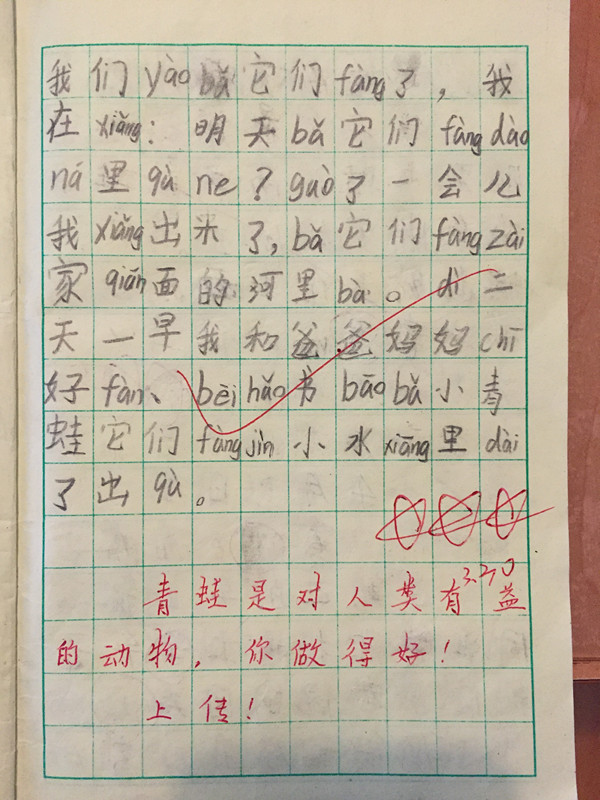 我们yào bǎ它们fàng了，我
在xiǎng：明天bǎ它们fàng dào
ná里qù ne？guò了一会儿
我xiǎng出米了，bǎ它们fàng zài
家qián面的河里bà。dì二
天一早我和爸爸妈妈chī
好fàn、bēi hǎo书bāo bǎ小青
蛙它们fàng jìn小水xiāng里dài
了出qù。
3.20
青蛙是对人类有益
的动物，你做得好！
上传！